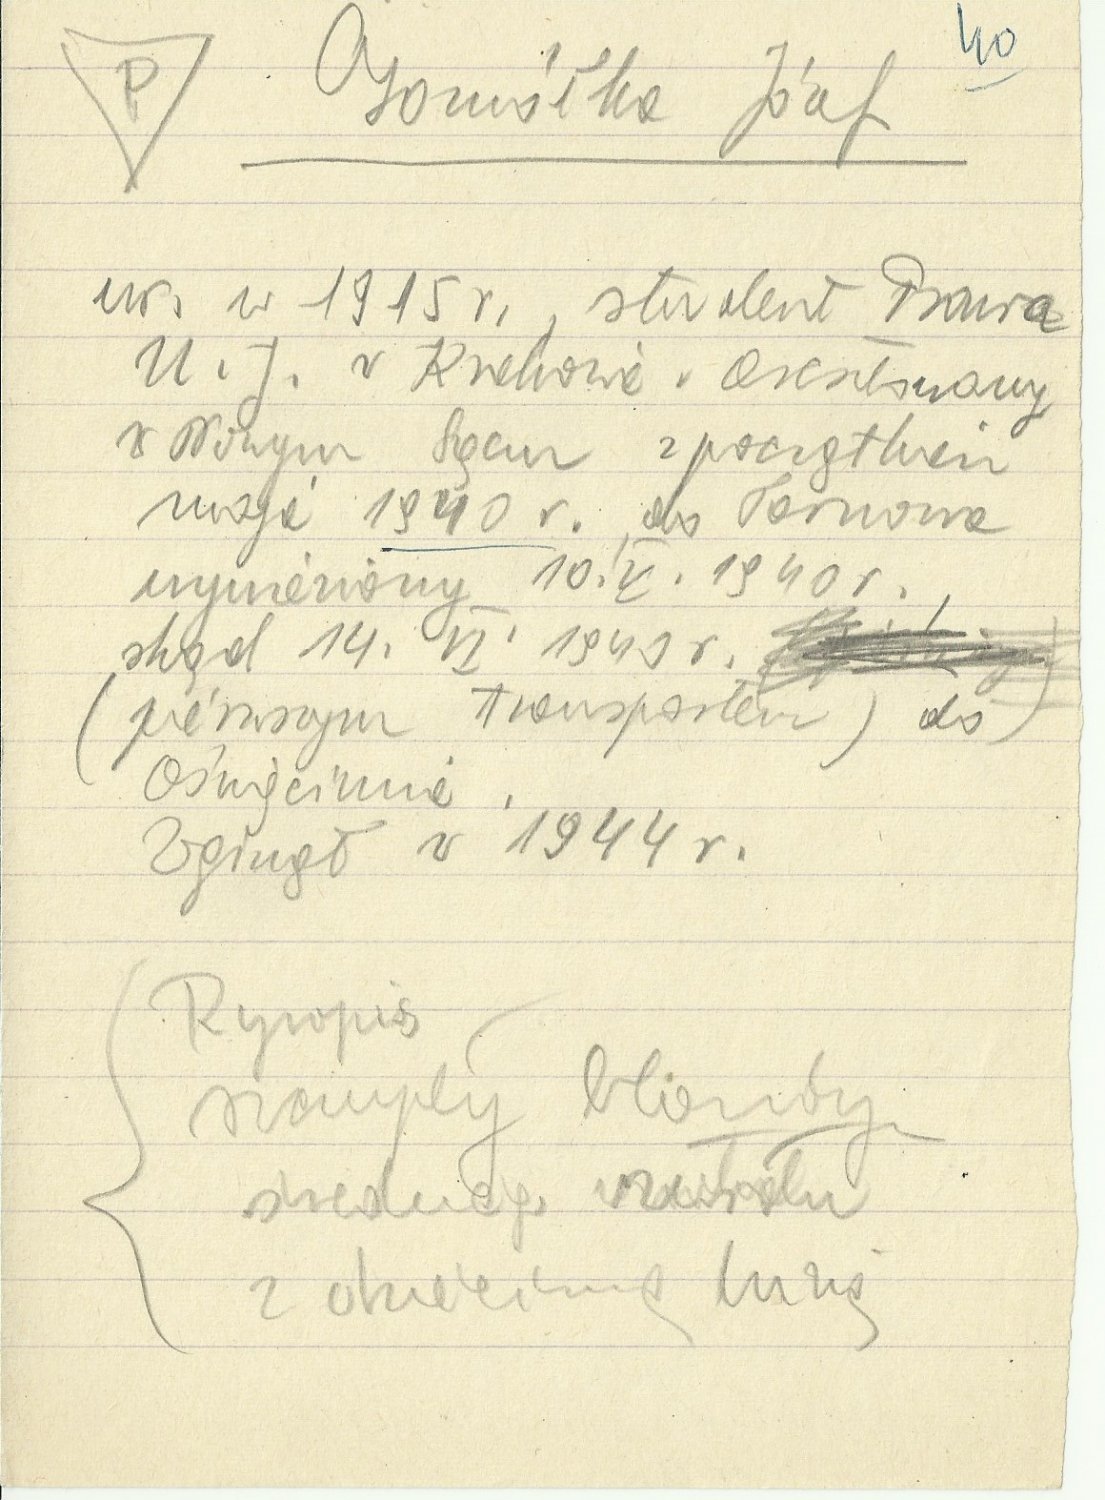 40
P
Gomółka Józef
ur. w 1915 r., student Prawa
U. J. w Krakowie. Aresztowany
w Nowym Sączu z początkiem
maja 1940 r. do Tarnowa
wywieziony 10. V. 1940 r.,
skąd 14. VI. 1940 r.
(pierwszym transportem) do
Oświęcimia.
Zginął w 1944 r.
Rysopis
szczupły blondyn
średniego wzrostu
z dziecinną buzią